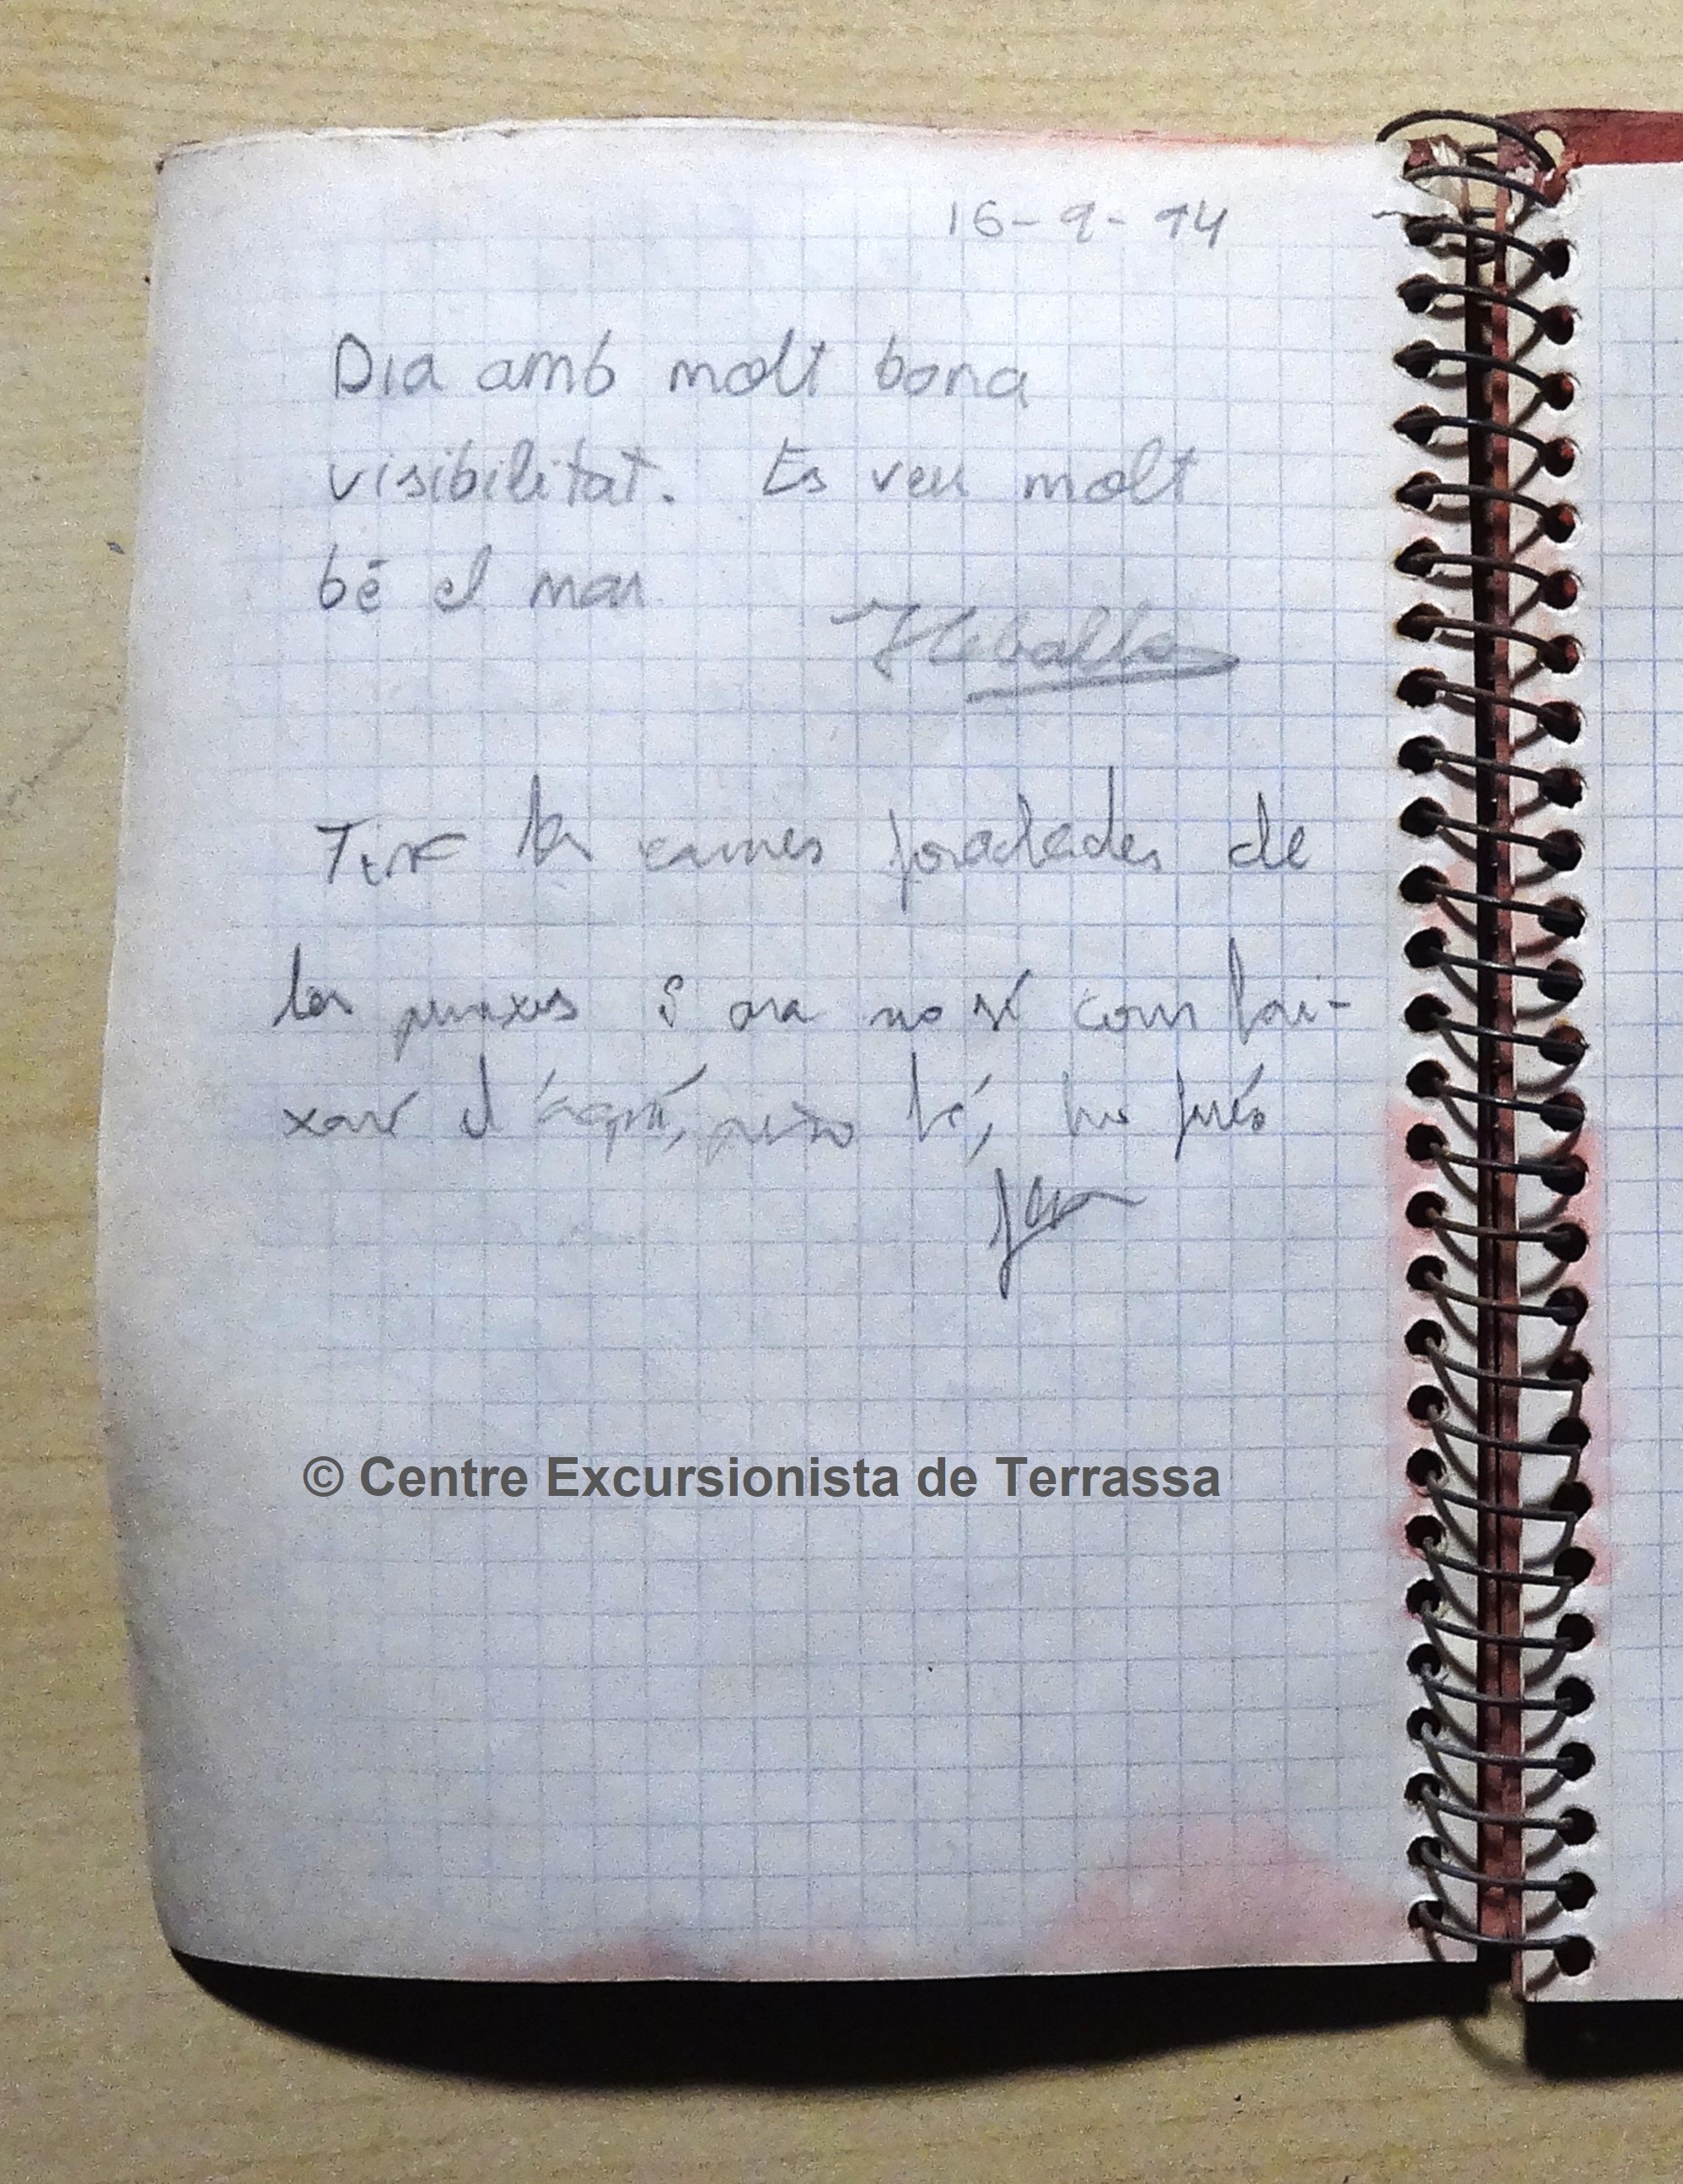 16-9-94
Dia amb molt bona
visibilitat. Es veu molt
bé el mar
Tinc les cames foradades de
les punxes i ara no sé com bai-
xaré d'aquí, però bé, ho
© Centre Excursionista de Terrassa